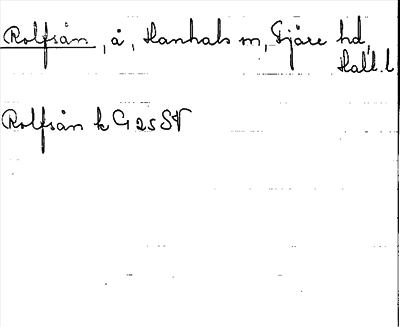 Rolfsån, å, Hanhals sn, Fjäre hd,
Hall. l
Rolfsån k G 25 SV